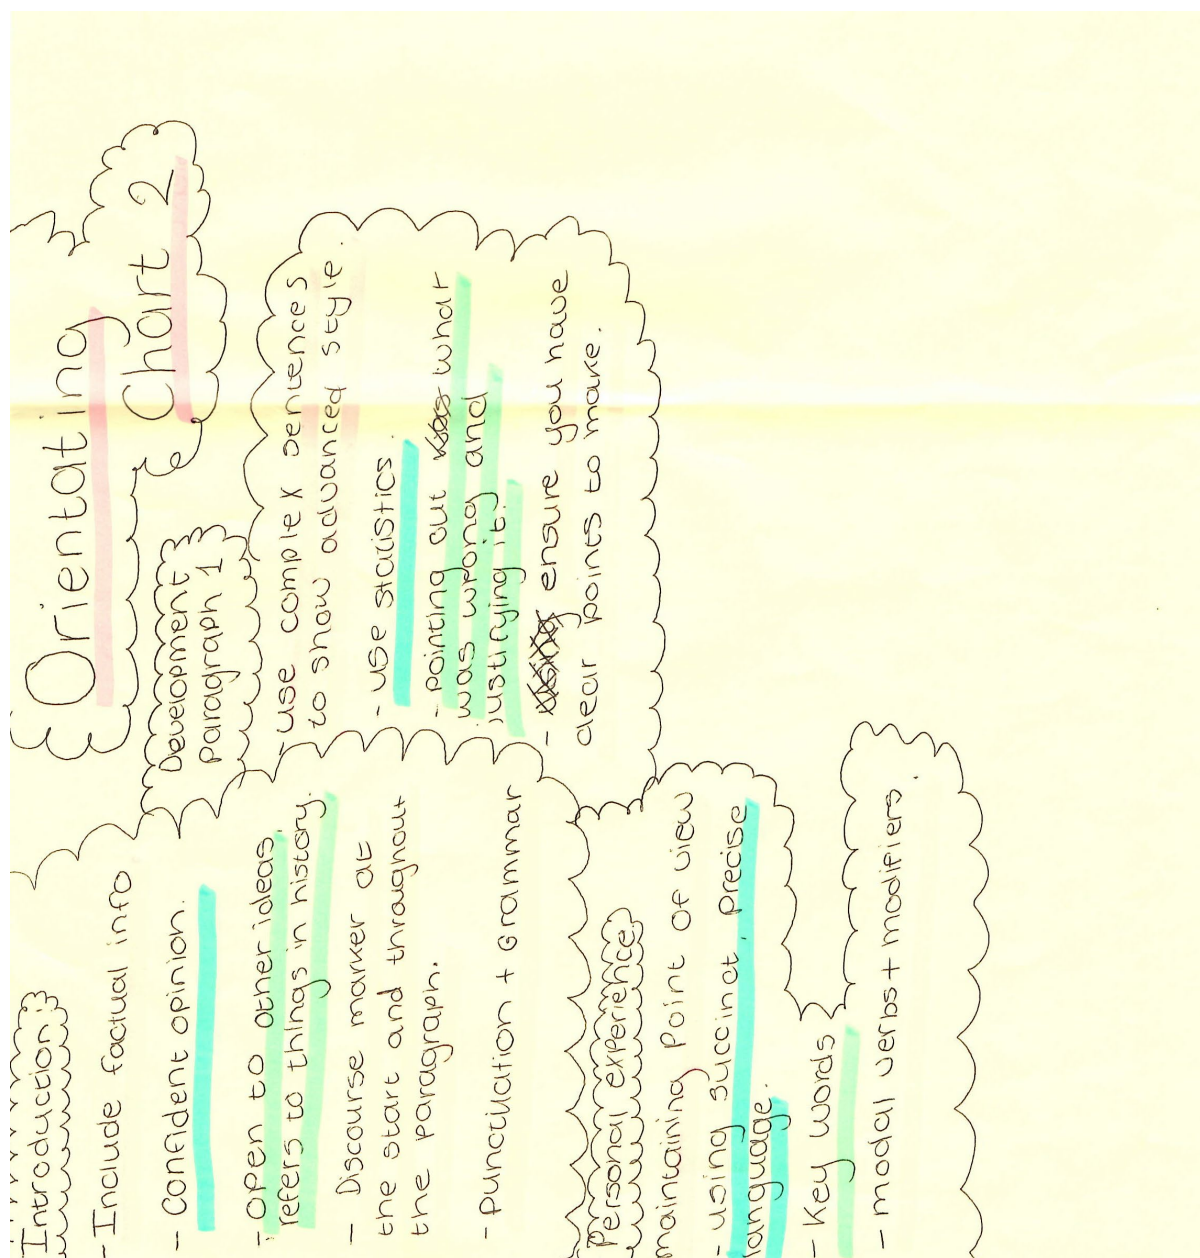 Orientating
Chart 2
Introduction:
- Include factual info
- Confident opinion.
- Open to other ideas.
refers to things in history.
- Discourse marker at
the start and throughout
the paragraph.
- Punctuation + Grammar
Development
paragraph 1
- Use complex sentences
to show advanced style.
- use statistics.
- pointing out was what
was wrong and
justifying it.
- Using ensure you have
clear points to make.
Personal experience
maintaining point of view
- using succinct, precise
language.
- Key words
- modal verbs + modifiers.